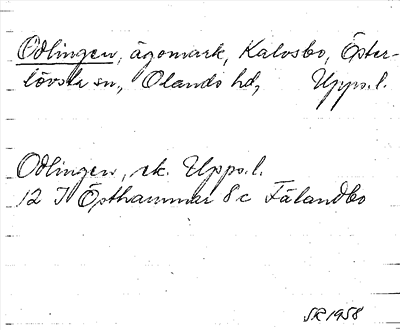 Odlingen, ägomark, Kalvsbo, Öster-
lövsta sn, Olands hd, Upps.l.
Odlingen, ek. Upps.l.
12 I Östhammar 8c Fälandbo
SR 1958